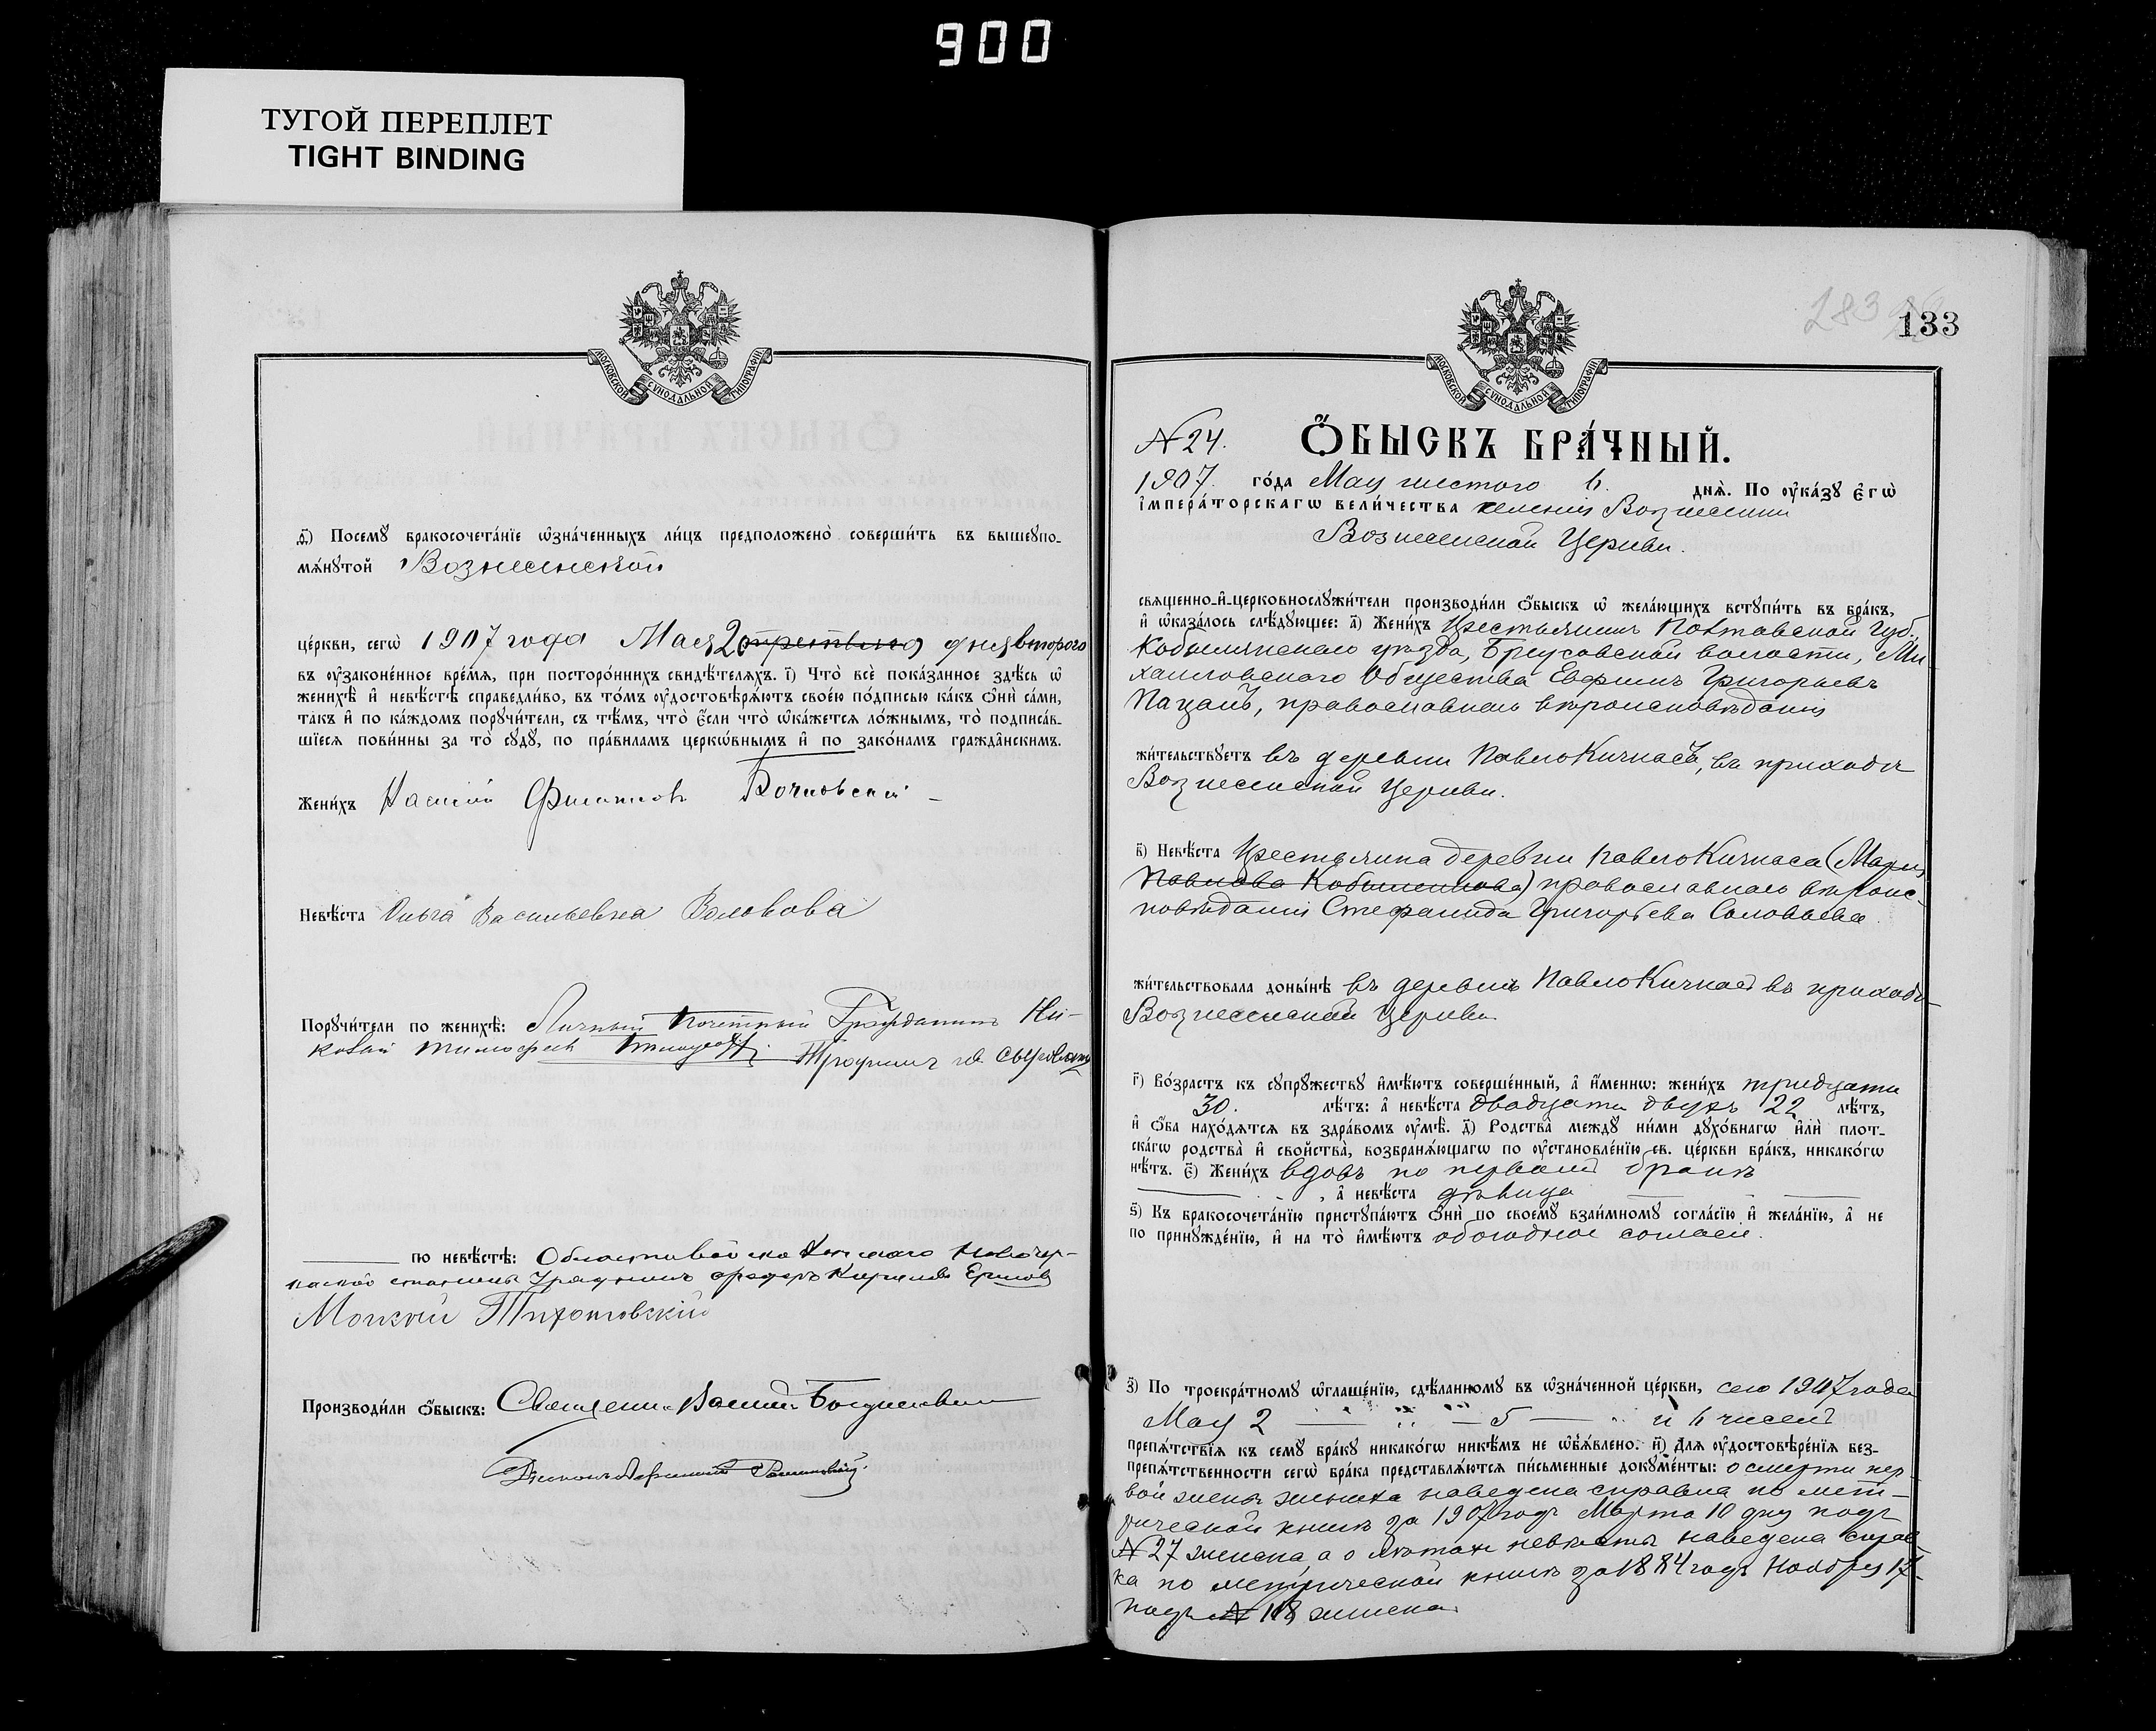 900
ТУГОЙ ПЕРЕПЛЕТ
TIGHT BINDING
МОСКОВСКОЙ СѴНОДАЛЬНОЙ ТИПОГРАФІИ
д҃) Посемꙋ бракосочета́нїе ѡ҆зна́ченныхъ ли́цъ предположенѡ̀ соверши́ть въ вышеꙋпо-
мѧ́нꙋтой Вознесенской
це́ркви, сегѡ̀ 1907 года Мая 2 третьяго дня второго
въ ᲂу҆зако́ненное вре́мѧ, при посторо́ннихъ свидѣ́телѧхъ. і҃) Что̀ всѐ пока́занное здѣ́сь ѡ҆
женихѣ̀ и҆ невѣ́стѣ справедли́во, въ то́мъ ᲂу҆достовѣрѧ́ютъ свое́ю по́дписью ка́къ ѻ҆нѝ са́ми,
та́къ и҆ по ка́ждомъ порꙋчи́тели, съ тѣ́мъ, что̀ є҆́сли что̀ ѡ҆ка́жетсѧ ло́жнымъ, то̀ подписа́в-
шїесѧ пови́нны за то̀ сꙋдꙋ̀, по пра́виламъ церко́внымъ и҆ по зако́намъ гражда̑нскимъ.
Жени́хъ Филиппов
Невѣ́ста Ольга Васильевна Воловова
Порꙋчи́тели по женихѣ̀: Личный Почетный Гражданинъ Ни-
колай Тимофеев Трофим
по невѣ́стѣ: Области Войска Донскаго Новочер-
каской станицы Урядникъ Федоръ Кирилов Ермов
Тихотовский
Производи́ли ѻ҆́быскъ: Священник
283
133
МОСКОВСКОЙ СѴНОДАЛЬНОЙ ТИПОГРАФІИ
№ 24. Ѻ҆́БЫСКЪ БРА́ЧНЫЙ.
1907. го́да Мая шестого 6. днѧ̀. По ᲂу҆ка́зꙋ є҆гѡ̀
і҆мпера́торскагѡ вели́чества селенія Вознесенки
Вознесенской Церкви.
свѧще́нно-и҆-церковнослꙋжи́тели производи́ли ѻ҆́быскъ ѡ҆ жела́ющихъ встꙋпи́ть въ бра́къ,
и҆ ѡ҆каза́лось слѣ́дꙋющее: а҃) Жени́хъ Крестьянинъ Полтавской губ.,
Кобылякскаго уезда, Бреусовской волости, Ми-
хайловскаго Общества Евфимъ Григорьевъ
Пацанъ, православнаго вѣроисповѣданія
жи́тельствꙋетъ въ деревни ПавлоКичкасъ, въ приходѣ
Вознесенской Церкви.
в҃) Невѣ́ста Крестьянка деревни ПавлоКичкаса (Марія
Павлова Кобыленкова) православнаго вѣроис-
повѣданія Стефанида Григорьева Соловьева.
жи́тельствовала доны́нѣ въ деревнѣ ПавлоКичкасъ въ приходѣ
Вознесенской Церкви
г҃) Во́зрастъ къ сꙋпрꙋ́жествꙋ и҆мѣ́ютъ соверше́нный, а҆ и҆́меннѡ: жени́хъ тридцати
30. лѣ́тъ: а҆ невѣ́ста двадцати двухъ 22 лѣ́тъ,
и҆ ѻ҆́ба нахо́дѧтсѧ въ здра́вомъ ᲂу҆мѣ̀. д҃) Родства̀ междꙋ̀ ни́ми дꙋхо́внагѡ и҆лѝ пло́т-
скагѡ родства̀ и҆ свойства̀, возбранѧ́ющагѡ по ᲂу҆становле́нїю св. це́ркви бра́къ, никако́гѡ
нѣ́тъ. є҃) Жени́хъ вдовъ по первомъ бракѣ
, а҆ невѣ́ста дѣвица
ѕ҃) Къ бракосочета́нїю пристꙋпа́ютъ ѻ҆нѝ по своемꙋ̀ взаи́мномꙋ согла́сїю и҆ жела́нїю, а҆ не
по принꙋжде́нїю, и҆ на то̀ и҆мѣ́ютъ обоюдное согласіе.
з҃) По троекра́тномꙋ ѡ҆глаше́нїю, сдѣ́ланномꙋ въ ѡ҆зна́ченной це́ркви, сего 1907 года
Мая 2 — 5 — и 6 чиселъ
препѧ́тствїѧ къ семꙋ̀ бра́кꙋ никако́гѡ никѣ́мъ не ѡ҆б̾ѧ́влено. и҃) Длѧ ᲂу҆достовѣре́нїѧ без-
препѧ́тственности сегѡ̀ бра́ка представлѧ́ютсѧ пи́сьменные докꙋме́нты: о смерти пер-
вой жены жениха наведена справка по мет-
рической книгѣ за 1907 годъ Марта 10 дня подъ
№ 27 женска, а о лѣтахъ невѣсты наведена справ-
ка по метрической книгѣ за 1884 годъ Ноября 17
подъ № 118 женска